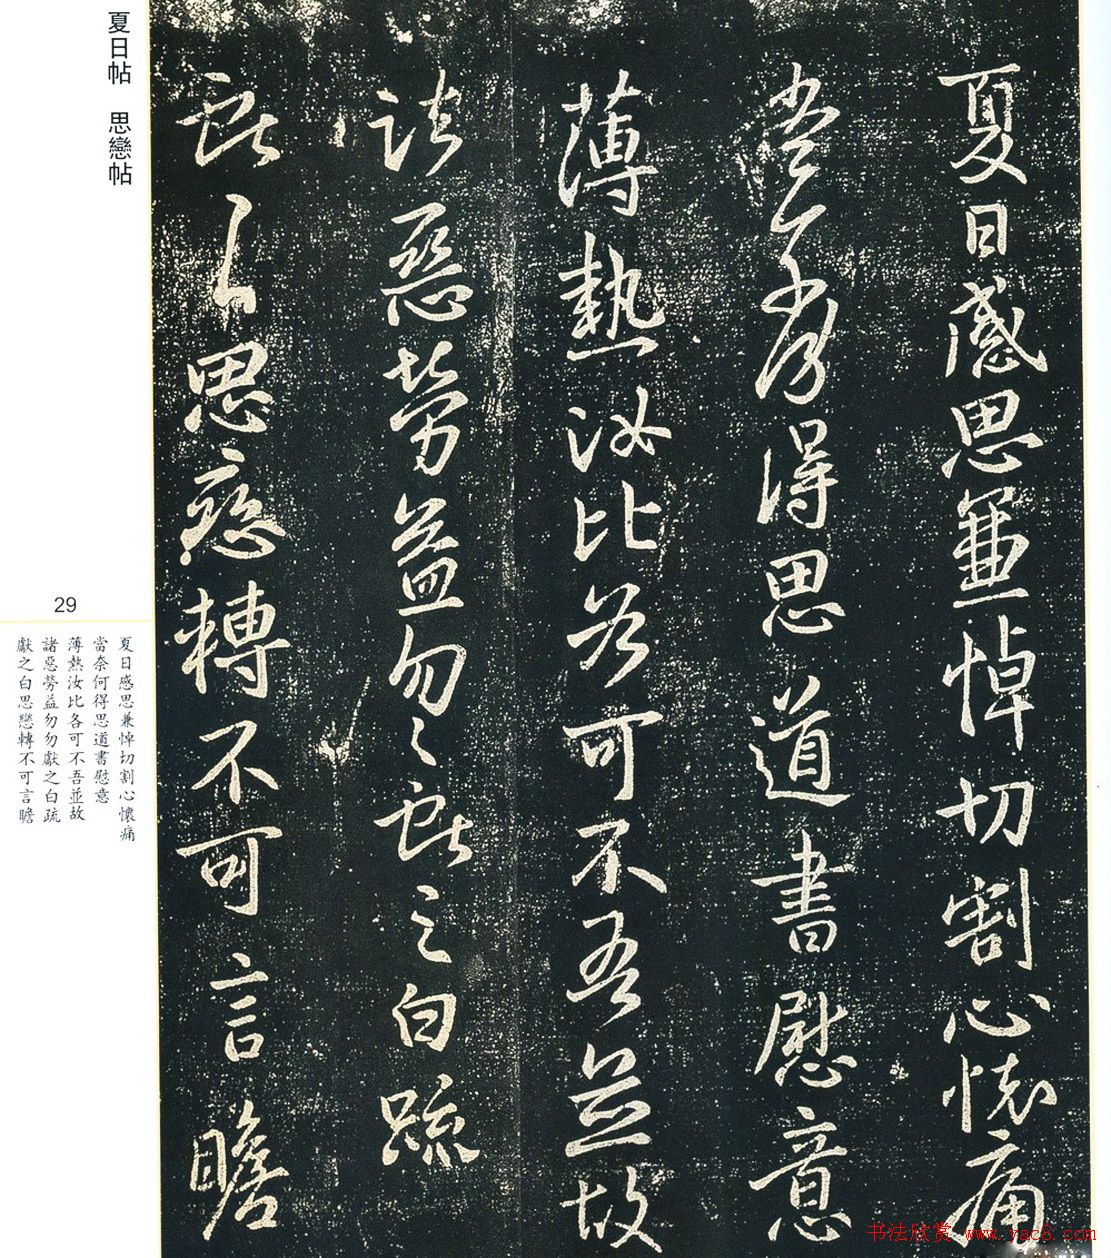 夏日感思兼悼切割心懷痛
當奈何得思道書慰意
薄熱汝比各可不吾並故
諸惡勞益勿勿獻之白疏
獻之白思戀轉不可言瞻
夏日帖 思戀帖
29
夏日感思兼悼切割心懷痛
當奈何得思道書慰意
薄熱汝比各可不吾並故
諸惡勞益勿勿獻之白疏
獻之白思戀轉不可言瞻
书法欣赏 www.yac8.com